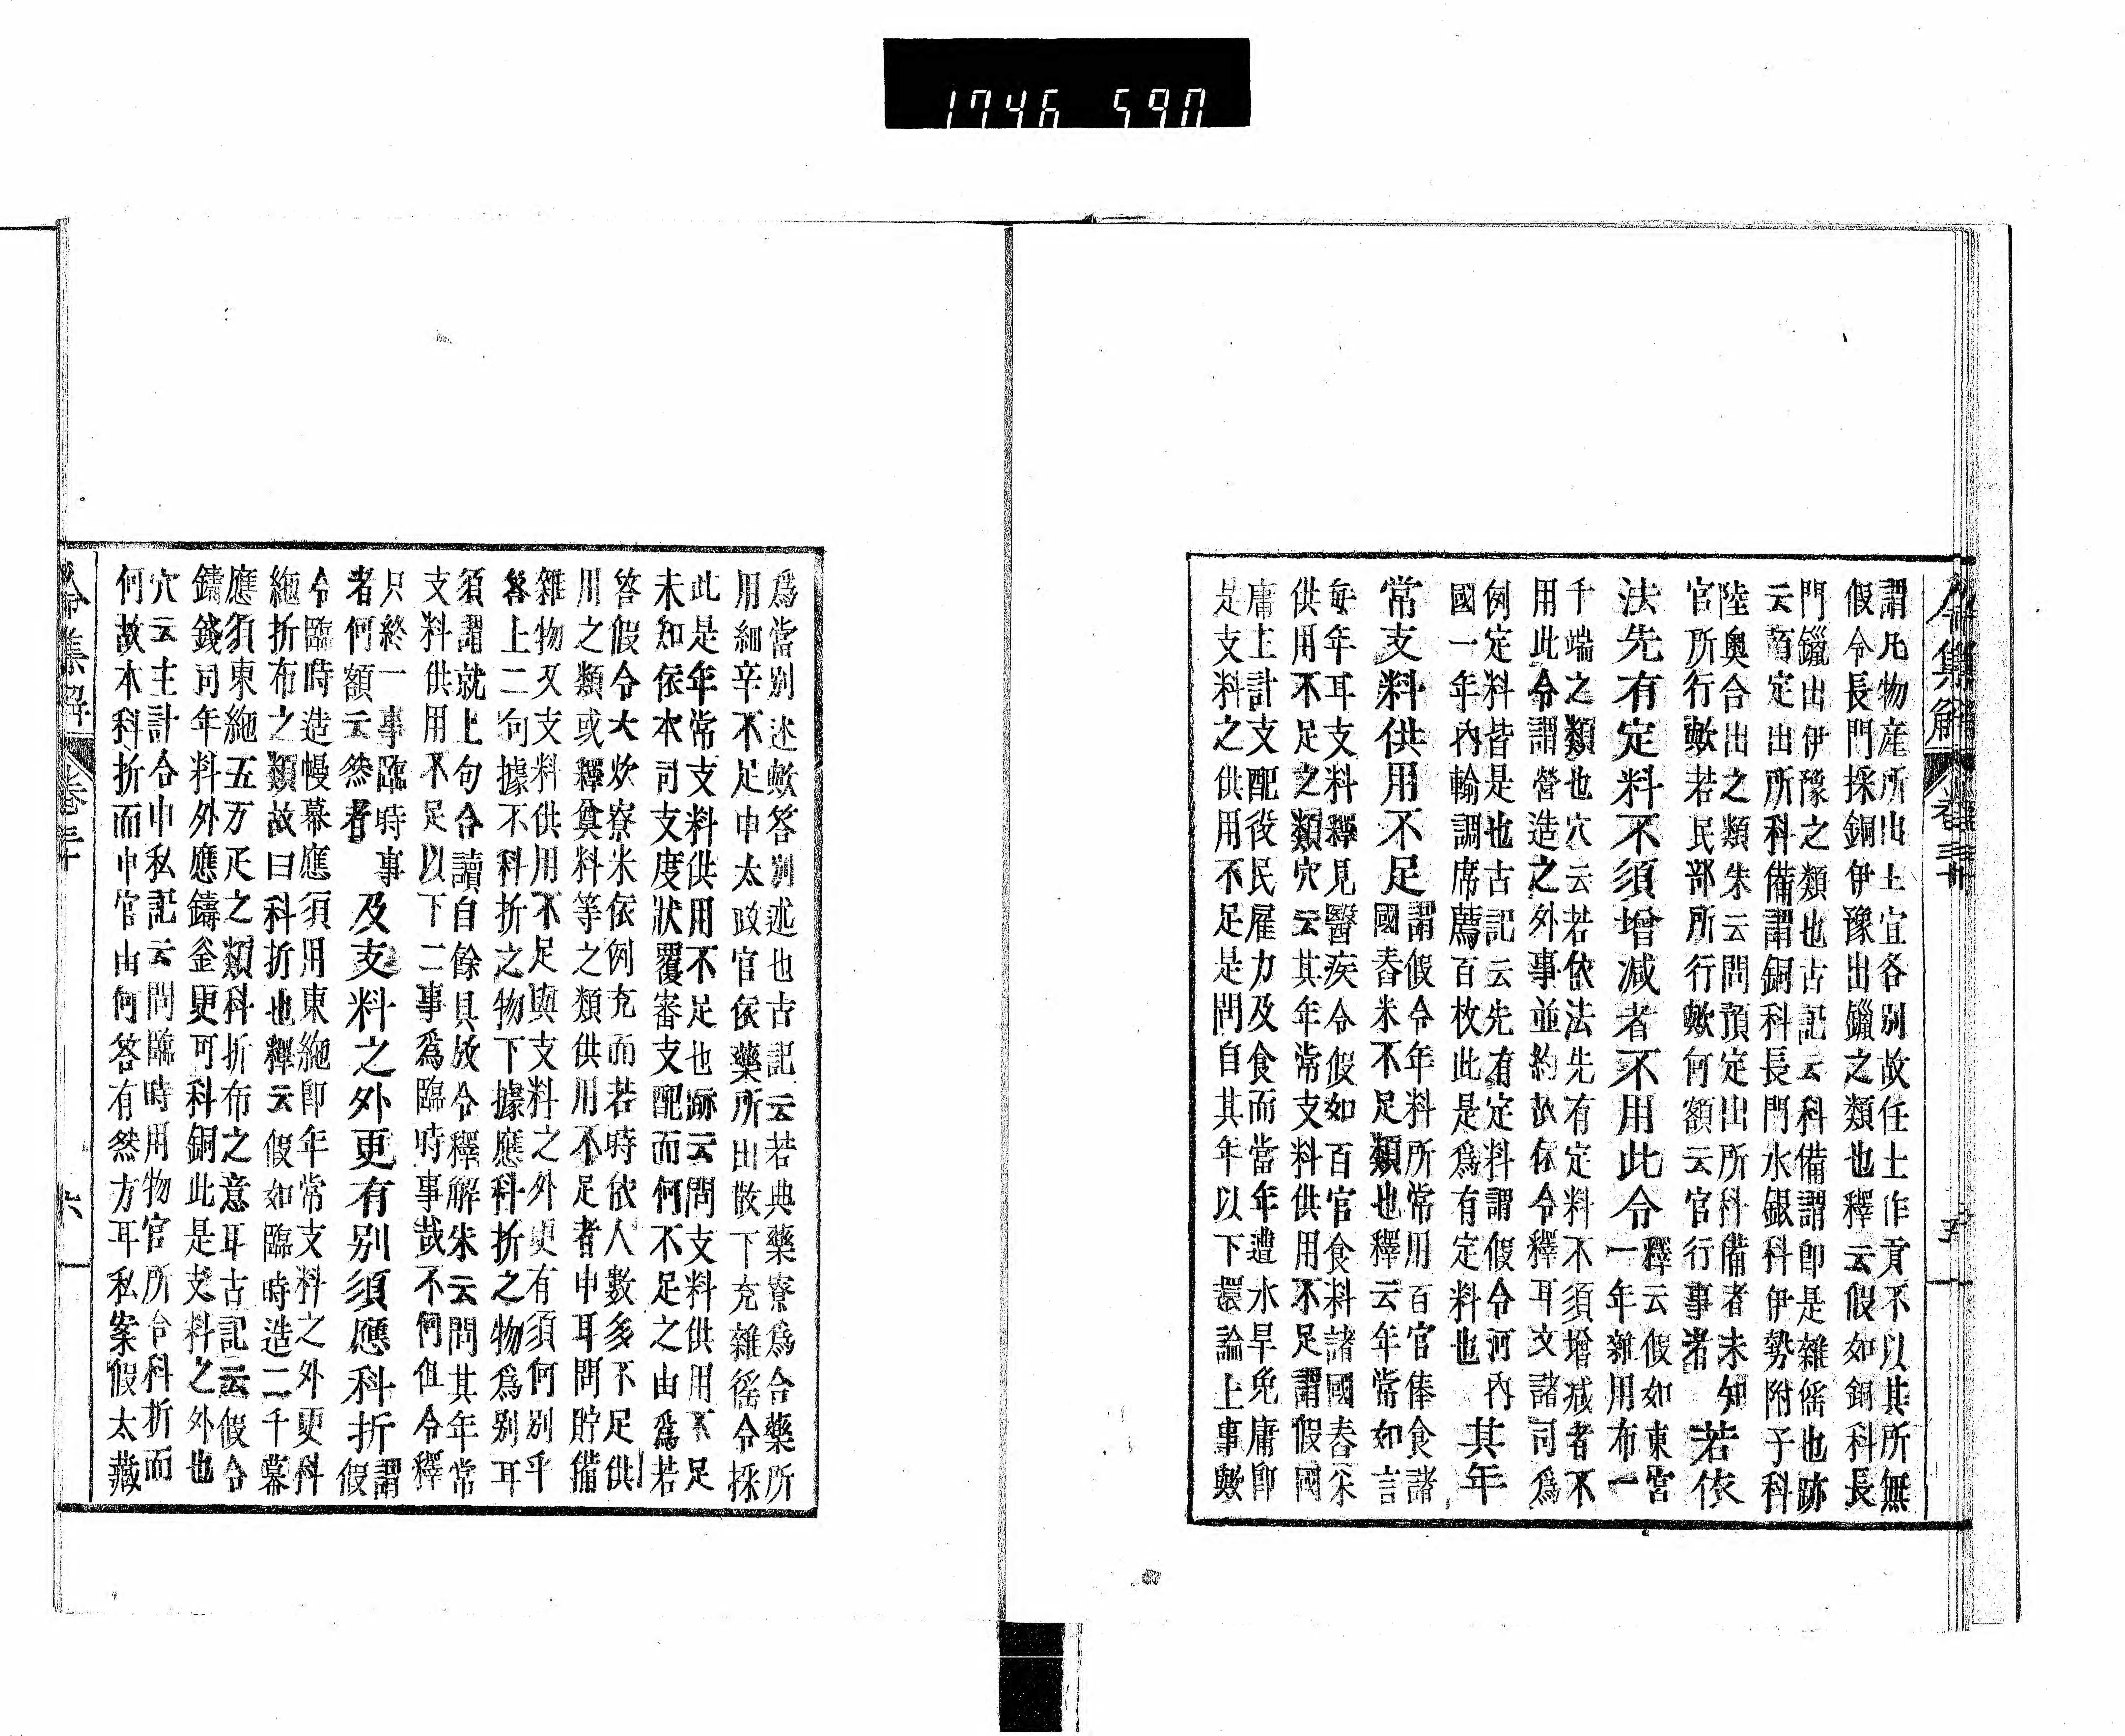 令集解 卷三十 五
謂凡物産所出土宜各別故任土作貢不以其所無
假令長門採銅伊豫出鑞之類也釋云假如銅科長
門鑞出伊豫之類也古記云科備謂即是雜徭也跡
云預定出所科備謂銅科長門水銀科伊勢附子科
陸奧合出之類朱云問預定出所科備者未知
官所行歟若民部所行歟何額云官行事者
若依
法先有定料不須增減者不用此令
釋云假如東宮
一年雜用布一
千端之類也穴云若依法先有定料不須增減者不
用此令謂營造之外事並約故依令釋耳文諸司爲
例定料皆是也古記云先有定料謂假令河內
國一年內輸調席薦百枚此是爲有定料也
其年
常支料供用不足
謂假令年料所常用百官俸食諸
國舂米不足類也釋云年常如言
每年耳支料釋見醫疾令假如百官食料諸國舂米
供用不足之類穴云其年常支料供用不足謂假國
庸主計支配役民雇力及食而當年遭水旱免庸即
是支料之供用不足是問自其年以下還論上事歟
爲當別述歟答別述也古記云若典藥寮爲合藥所
用細辛不足申太政官依藥所出散下充雜徭令採
此是年常支料供用不足也跡云問支料供用不足
未知依本司支度狀覆審支配而何不足之由爲若
答假令大炊寮米依例充而若時依人數多不足供
用之類或釋奠料等之類供用不足者申耳問貯備
雜物又支料供用不足與支料之外更有須何別乎
答上二句據不科折之物下據應科折之物爲別耳
須謂就上句令讀自餘具故令釋解朱云問其年常
支料供用不足以下二事爲臨時事哉不何但令釋
只終一事臨時事
者何額云然者
及支料之外更有別須應科折
謂
假
令臨時造幔幕應須用東絁即年常支料之外更科
絁折布之類故曰科折也釋云假如臨時造二千幕
應須東絁五万疋之類科折布之意耳古記云假令
鑄錢司年料外應鑄釜更可科銅此是支料之外也
穴云主計合申私記云問臨時用物官所令科折而
何故本科折而申官由何答有然方耳私案假太藏
令集解 卷三十 六